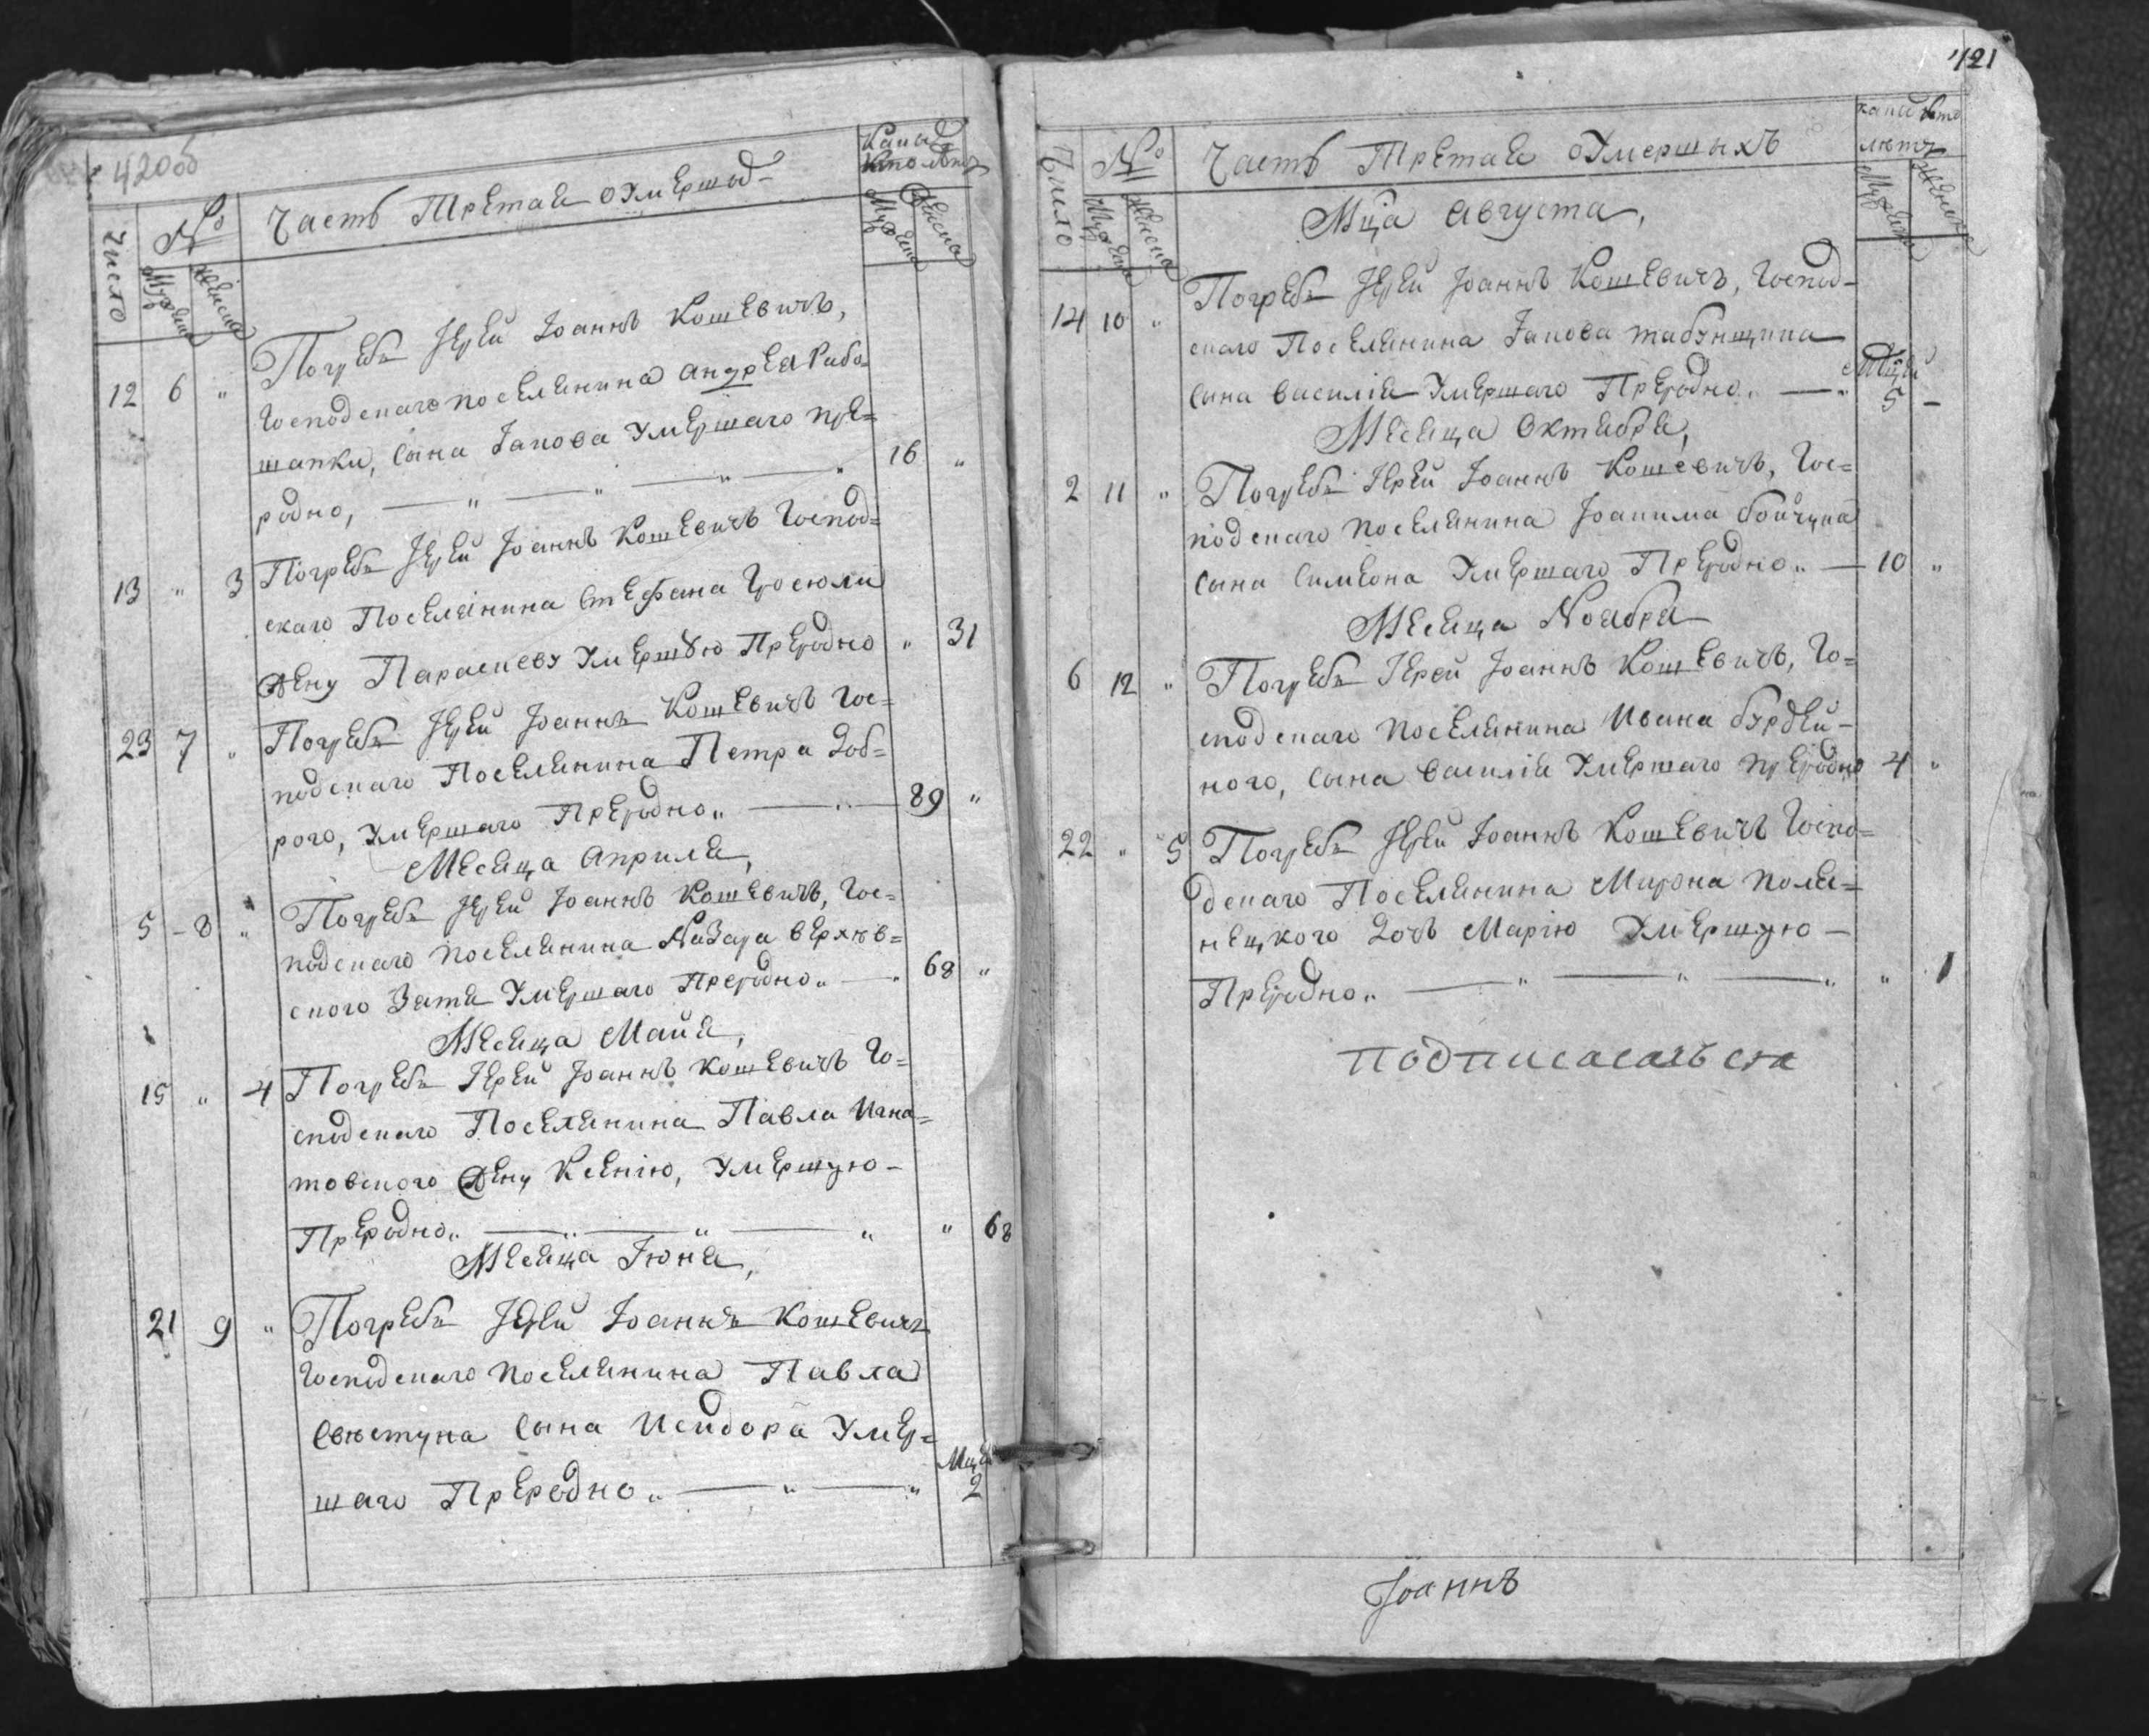 420об
Число
№
Часть Третая о Умершыд-
Мужеска
Женска
Мужеска
Женска
12 6 "
Погребъ Іерей Іоаннъ Кошевичъ,
Господскаго поселянина Андрея Рибо=
шапки, сына Іакова Умершаго пре=
родно, — " — " — " — " 16 "
13 " 3 Погребъ Іерей Іоаннъ Кошевичъ Господ=
скаго Поселянина Стефана
жену Параскеву Умершую Преродно " 31
23 7 " Погребъ Іерей Іоаннъ Кошевичъ Гос=
подскаго Поселянина Петра Доб=
рого, Умершаго Преродно,, — " — 89 "
Месяца Априля,
5 - 8 " Погребъ Іерей Іоаннъ Кошевичъ, Гос=
подскаго поселянина Назара верхнѣв=
ского Зятя Умершаго Преродно,, — " 68 "
Месяца Майя,
15 " 4 Погребъ Іерей Іоаннъ Кошевичъ Го=
сподскаго Поселянина Павла Игна=
товского жену Ксенію, Умершую -
Преродно,, — " — " — " " 68
Месяца Іюня,
21 9 " Погребъ Іерей Іоаннъ Кошевичъ
Господскаго поселянина Павла
Свѣстуна сына Исидора Умер=
шаго Преродно,, — " — " Мцей 2
421
Число
№
Часть Третая о Умершыхъ
лѣтъ
Мужеска
Женска
Мужеска
Женска
Мца Августа,
14 10 " Погребъ Іерей Іоаннъ Кошевичъ, Господ-
скаго Поселянина Іакова табунщика
сына василія Умершаго Преродно,, — " Мцей 5 -
Месяца Октября,
2 11 " Погребъ Іерей Іоаннъ Кошевичъ, Гос=
подскаго поселянина Іоакима бойчука
сына симеона Умершаго Преродно,, — 10 "
Месяца Ноября
6 12 " Погребъ Іерей Іоаннъ Кошевичъ, Го=
сподскаго поселянина Ивана бурдей-
ного, сына василія Умершаго преродно 4 "
22 " 5 Погребъ Іерей Іоаннъ Кошевичъ Госпо=
дскаго Поселянина Мирона поля=
нецкого Дочь Марію Умершую —
Преродно,, — " — " — " " 1
Іоаннъ